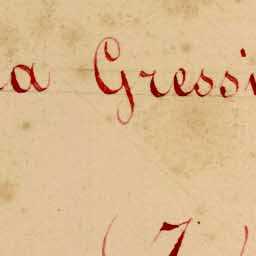 a Gressi
(7)